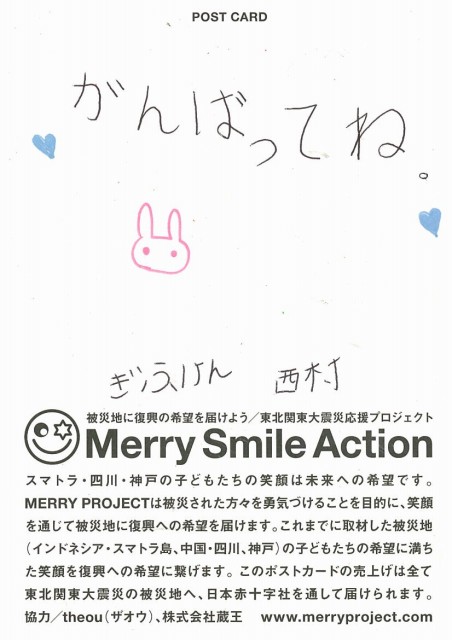 POST CARD
がんばってね。
ぎふけん 西村
被災地に復興の希望を届けよう／東北関東大震災応援プロジェクト
Merry Smile Action
スマトラ・四川・神戸の子どもたちの笑顔は未来への希望です。
MERRY PROJECTは被災された方々を勇気づけることを目的に、笑顔
を通じて被災地に復興への希望を届けます。これまでに取材した被災地
（インドネシア・スマトラ島、中国・四川、神戸）の子どもたちの希望に満ち
た笑顔を復興への希望に繋げます。このポストカードの売上げは全て
東北関東大震災の被災地へ、日本赤十字社を通して届けられます。
協力／theou（ザオウ）、株式会社蔵王 www.merryproject.com